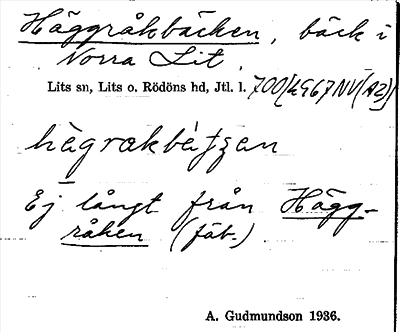 Häggråkbäcken, bäck i
Norra Lit.
Lits sn, Lits o. Rödöns hd, Jtl. l. 700/4967 NV (A2)
hägrakbätʃen
Ej långt från Hägg-
råken (fäb.)
A. Gudmundson 1936.